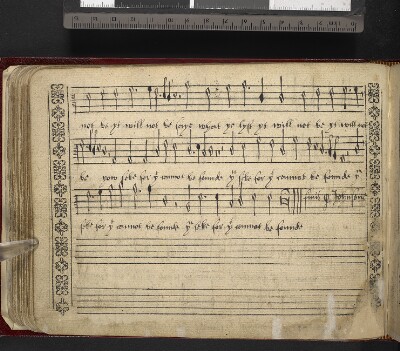 not be yt will not be saye what ye lyst yt will not be yt will not
be yow seke for yt cannot be founde yt seke for yt cannot be founde yt
finis Johnson
seke for yt cannot be founde yt seke for yt cannot be founde